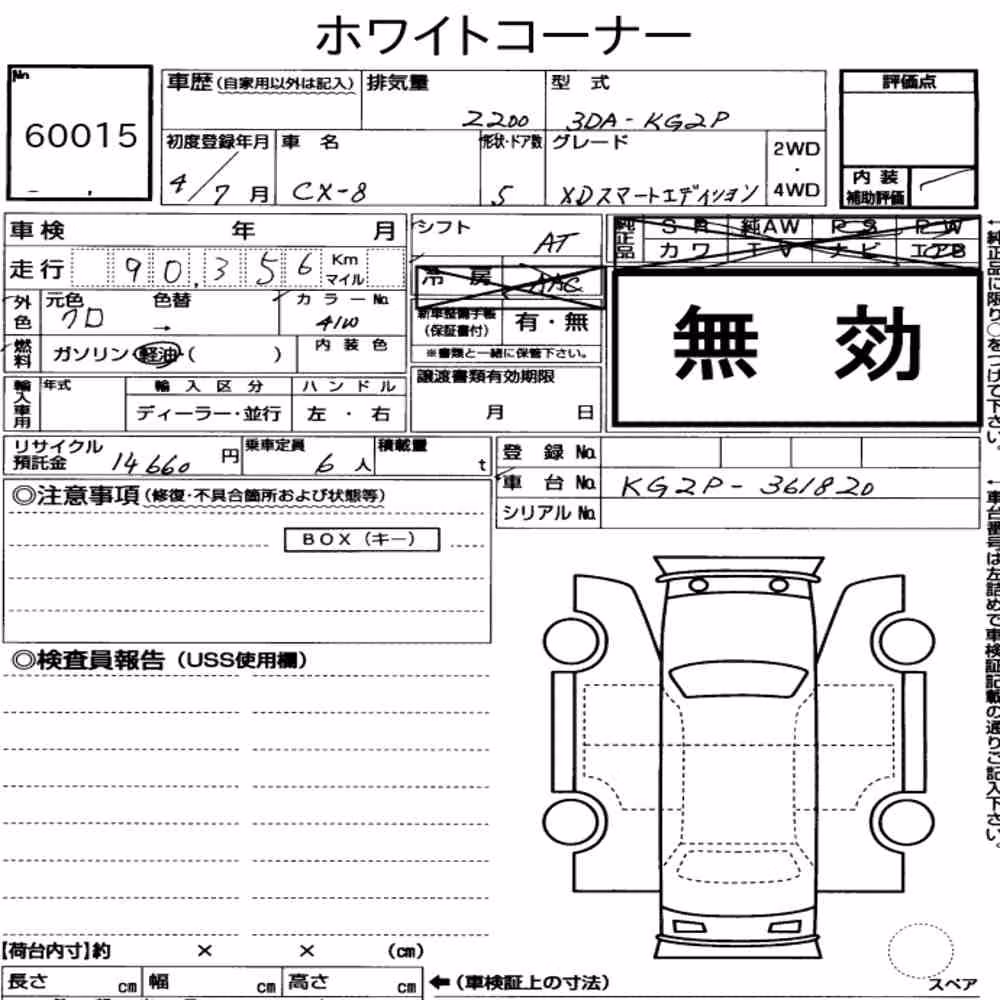 ホワイトコーナー
No
60015
車歴(自家用以外は記入) 排気量 2200
型式 3DA-KG2P
評価点
初度登録年月 4/7月
車名 CX-8
形状・ドア数 5
グレード XDスマートエディション
2WD
・
4WD
内装
補助評価
車検 年 月
シフト AT
純正品 SR 純AW PS PW
カワ エV ナビ エアB
走行 90,356 Km
マイル
冷房 AAC
外色 元色 クロ 色替 →
カラーNo. 41W
新車整備手帳
(保証書付) 有・無
※書類と一緒に保管下さい。
無効
燃料 ガソリン・軽油・( )
内装色
輸入車用 年式 輸入区分 ハンドル
ディーラー・並行 左・右
譲渡書類有効期限
月 日
リサイクル
預託金 14660円
乗車定員 6人
積載量 t
登録No.
車台No. KG2P-361820
シリアルNo.
◎注意事項(修復・不具合箇所および状態等)
BOX(キー)
◎検査員報告(USS使用欄)
←純正品に限り○をつけて下さい。
←車台番号は左詰めで車検証記載の通りご記入下さい。
【荷台内寸】約 × × (cm)
長さ cm 幅 cm 高さ cm ←(車検証上の寸法)
スペア